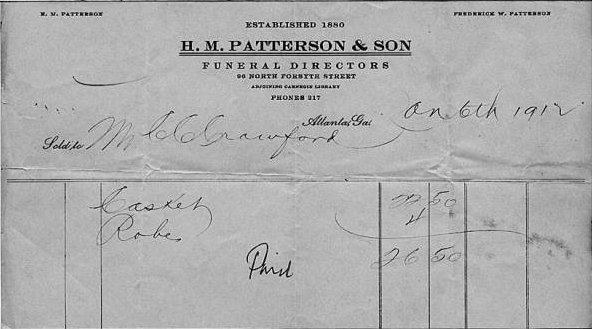 H. M. PATTERSON
FREDERICK W. PATTERSON
ESTABLISHED 1880
H. M. PATTERSON & SON
FUNERAL DIRECTORS
96 NORTH FORSYTH STREET
ADJOINING CARNEGIE LIBRARY
PHONES 217
Atlanta, Ga. 6th 1912
Sold to Mr C C Crawford
Casket 22 50
Robe 4
26 50
Paid